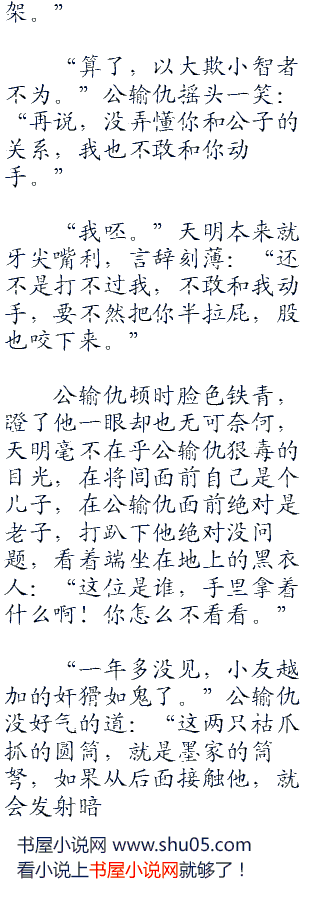 架。”
“算了，以大欺小智者
不为。”公输仇摇头一笑：
“再说，没弄懂你和公子的
关系，我也不敢和你动
手。”
“我呸。”天明本来就
牙尖嘴利，言辞刻薄：“还
不是打不过我，不敢和我动
手，要不然把你半拉屁，股
也咬下来。”
公输仇顿时脸色铁青，
瞪了他一眼却也无可奈何，
天明毫不在乎公输仇狠毒的
目光，在将闾面前自己是个
儿子，在公输仇面前绝对是
老子，打趴下他绝对没问
题，看着端坐在地上的黑衣
人：“这位是谁，手里拿着
什么啊！你怎么不看看。”
“一年多没见，小友越
加的奸猾如鬼了。”公输仇
没好气的道：“这两只祜爪
抓的圆筒，就是墨家的筒
弩，如果从后面接触他，就
会发射暗
书屋小说网 www.shu05.com
看小说上书屋小说网就够了！